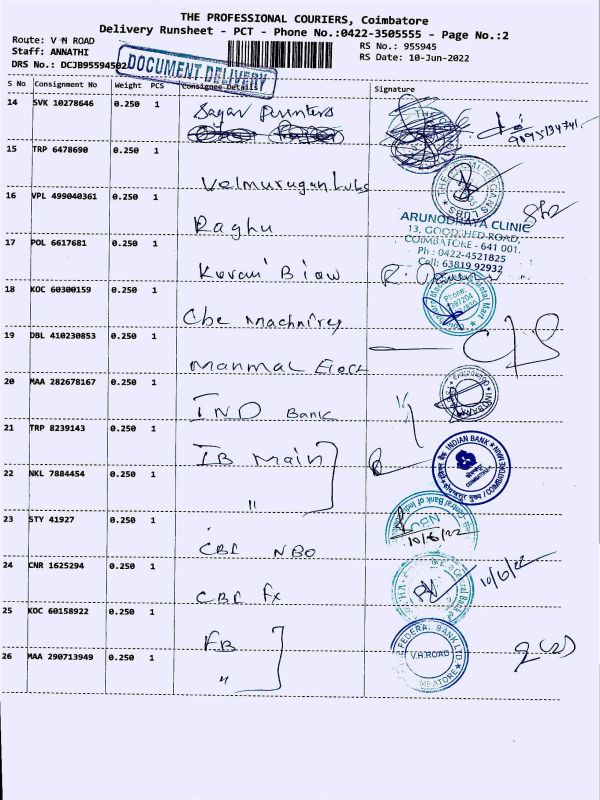 THE PROFESSIONAL COURIERS, Coimbatore
Delivery Runsheet - PCT - Phone No.:0422-3505555 - Page No.:2
Route: V H ROAD
RS No.: 955945
Staff: ANNATHI
RS Date: 10-Jun-2022
DRS No.: DCJB95594502
DOCUMENT DELIVERY
S No Consignment No Weight PCS Consignee Details Signature
14 SVK 10278646 0.250 1 Sagar Printers
9095194741
15 TRP 6478690 0.250 1 Velmurugan Lubs
16 VPL 499040361 0.250 1 Raghu
ARUNODHAYA CLINIC
13, GOODSHED ROAD,
COIMBATORE - 641 001.
Ph : 0422-4521825
Cell: 63819 92932
17 POL 6617681 0.250 1
18 KOC 60300159 0.250 1 Cbe Machnirey
Phone:
19 DBL 410230853 0.250 1 Manmal Elect
20 MAA 282678167 0.250 1 IND Bank
21 TRP 8239143 0.250 1 IB Main
INDIAN BANK
COIMBATORE MAIN
22 NKL 7884454 0.250 1 "
23 STY 41927 0.250 1 CBI NBO
Central Bank of India
NBO
10/6/22
24 CNR 1625294 0.250 1 CBI Fx
10/6/22
25 KOC 60158922 0.250 1 FB
FEDERAL BANK LTD
V.H.ROAD
26 MAA 290713949 0.250 1 "